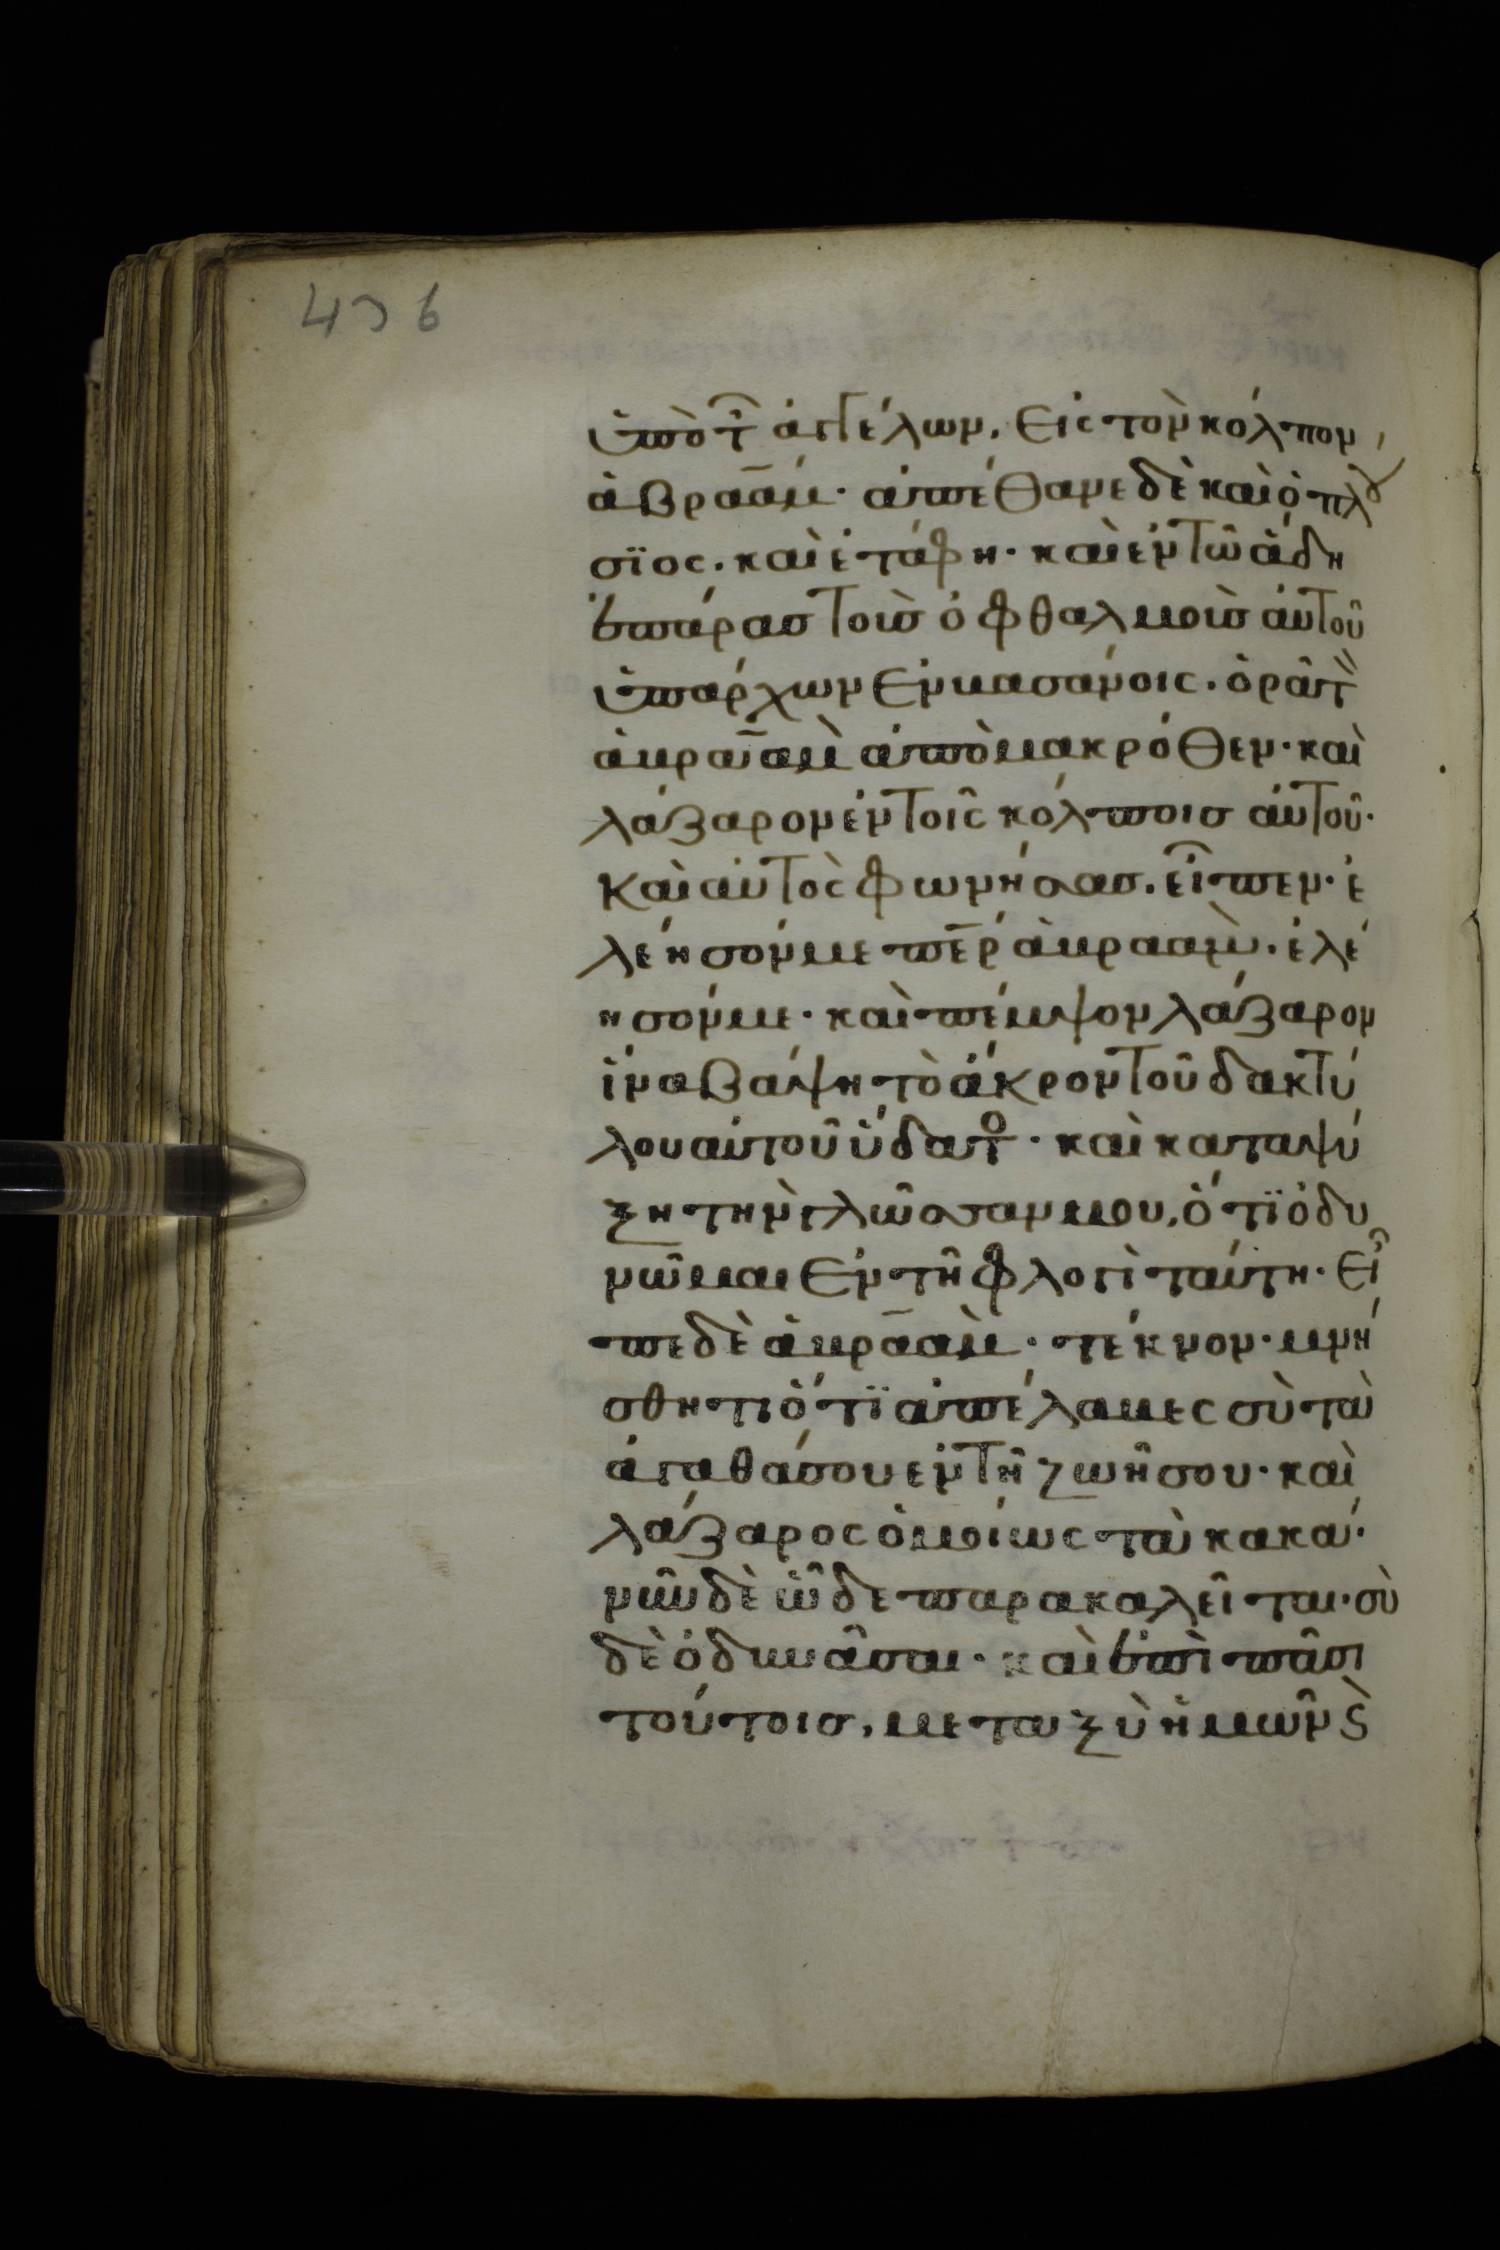 436
ὑπὸ τ ἀγγέλων. εἰς τὸν κόλπον
ἀβραάμ· ἀπέθανε δὲ καὶ ὁ πλού
σϊος. καὶ ἐτάφη· καὶ ἐν τῶ ἅδη
ἐπάρας τοὺς ὀφθαλμοὺς αὐτοῦ
ὑπάρχων ἐν βασάνοις. ὁρᾶ τὸν
ἀβραὰμ ἀπὸ μακρόθεν· καὶ
λάζαρον ἐν τοῖς κόλποις αὐτοῦ·
καὶ αὐτὸς φωνήσας. εἶπεν· ἐ
λέησόν με περ ἀβραάμ. ἐλέ
ησόν με· καὶ πέμψον λάζαρον
ἵνα βάψη τὸ ἄκρον τοῦ δακτύ
λου αὐτοῦ ὕδατο· καὶ καταψύ
ξη τὴν γλῶσσαν μου, ὅτϊ ὀδυ
νῶμαι ἐν τῆ φλογὶ ταύτη· εἶ
πε δὲ ἀβραάμ· τέκνον· μνή
σθητι ὅτϊ ἀπέλαβες σὺ τὰ
ἀγαθά σου ἐν τῆ ζωῆ σου· καὶ
λάζαρος ὁμοίως τὰ κακά·
νῦν δὲ ὧδε παρακαλεῖται· σὺ
δὲ ὀδυνᾶσαι· καὶ ἐπὶ πᾶσι
τούτοις, μεταξὺ ἡμῶν ϛ̀